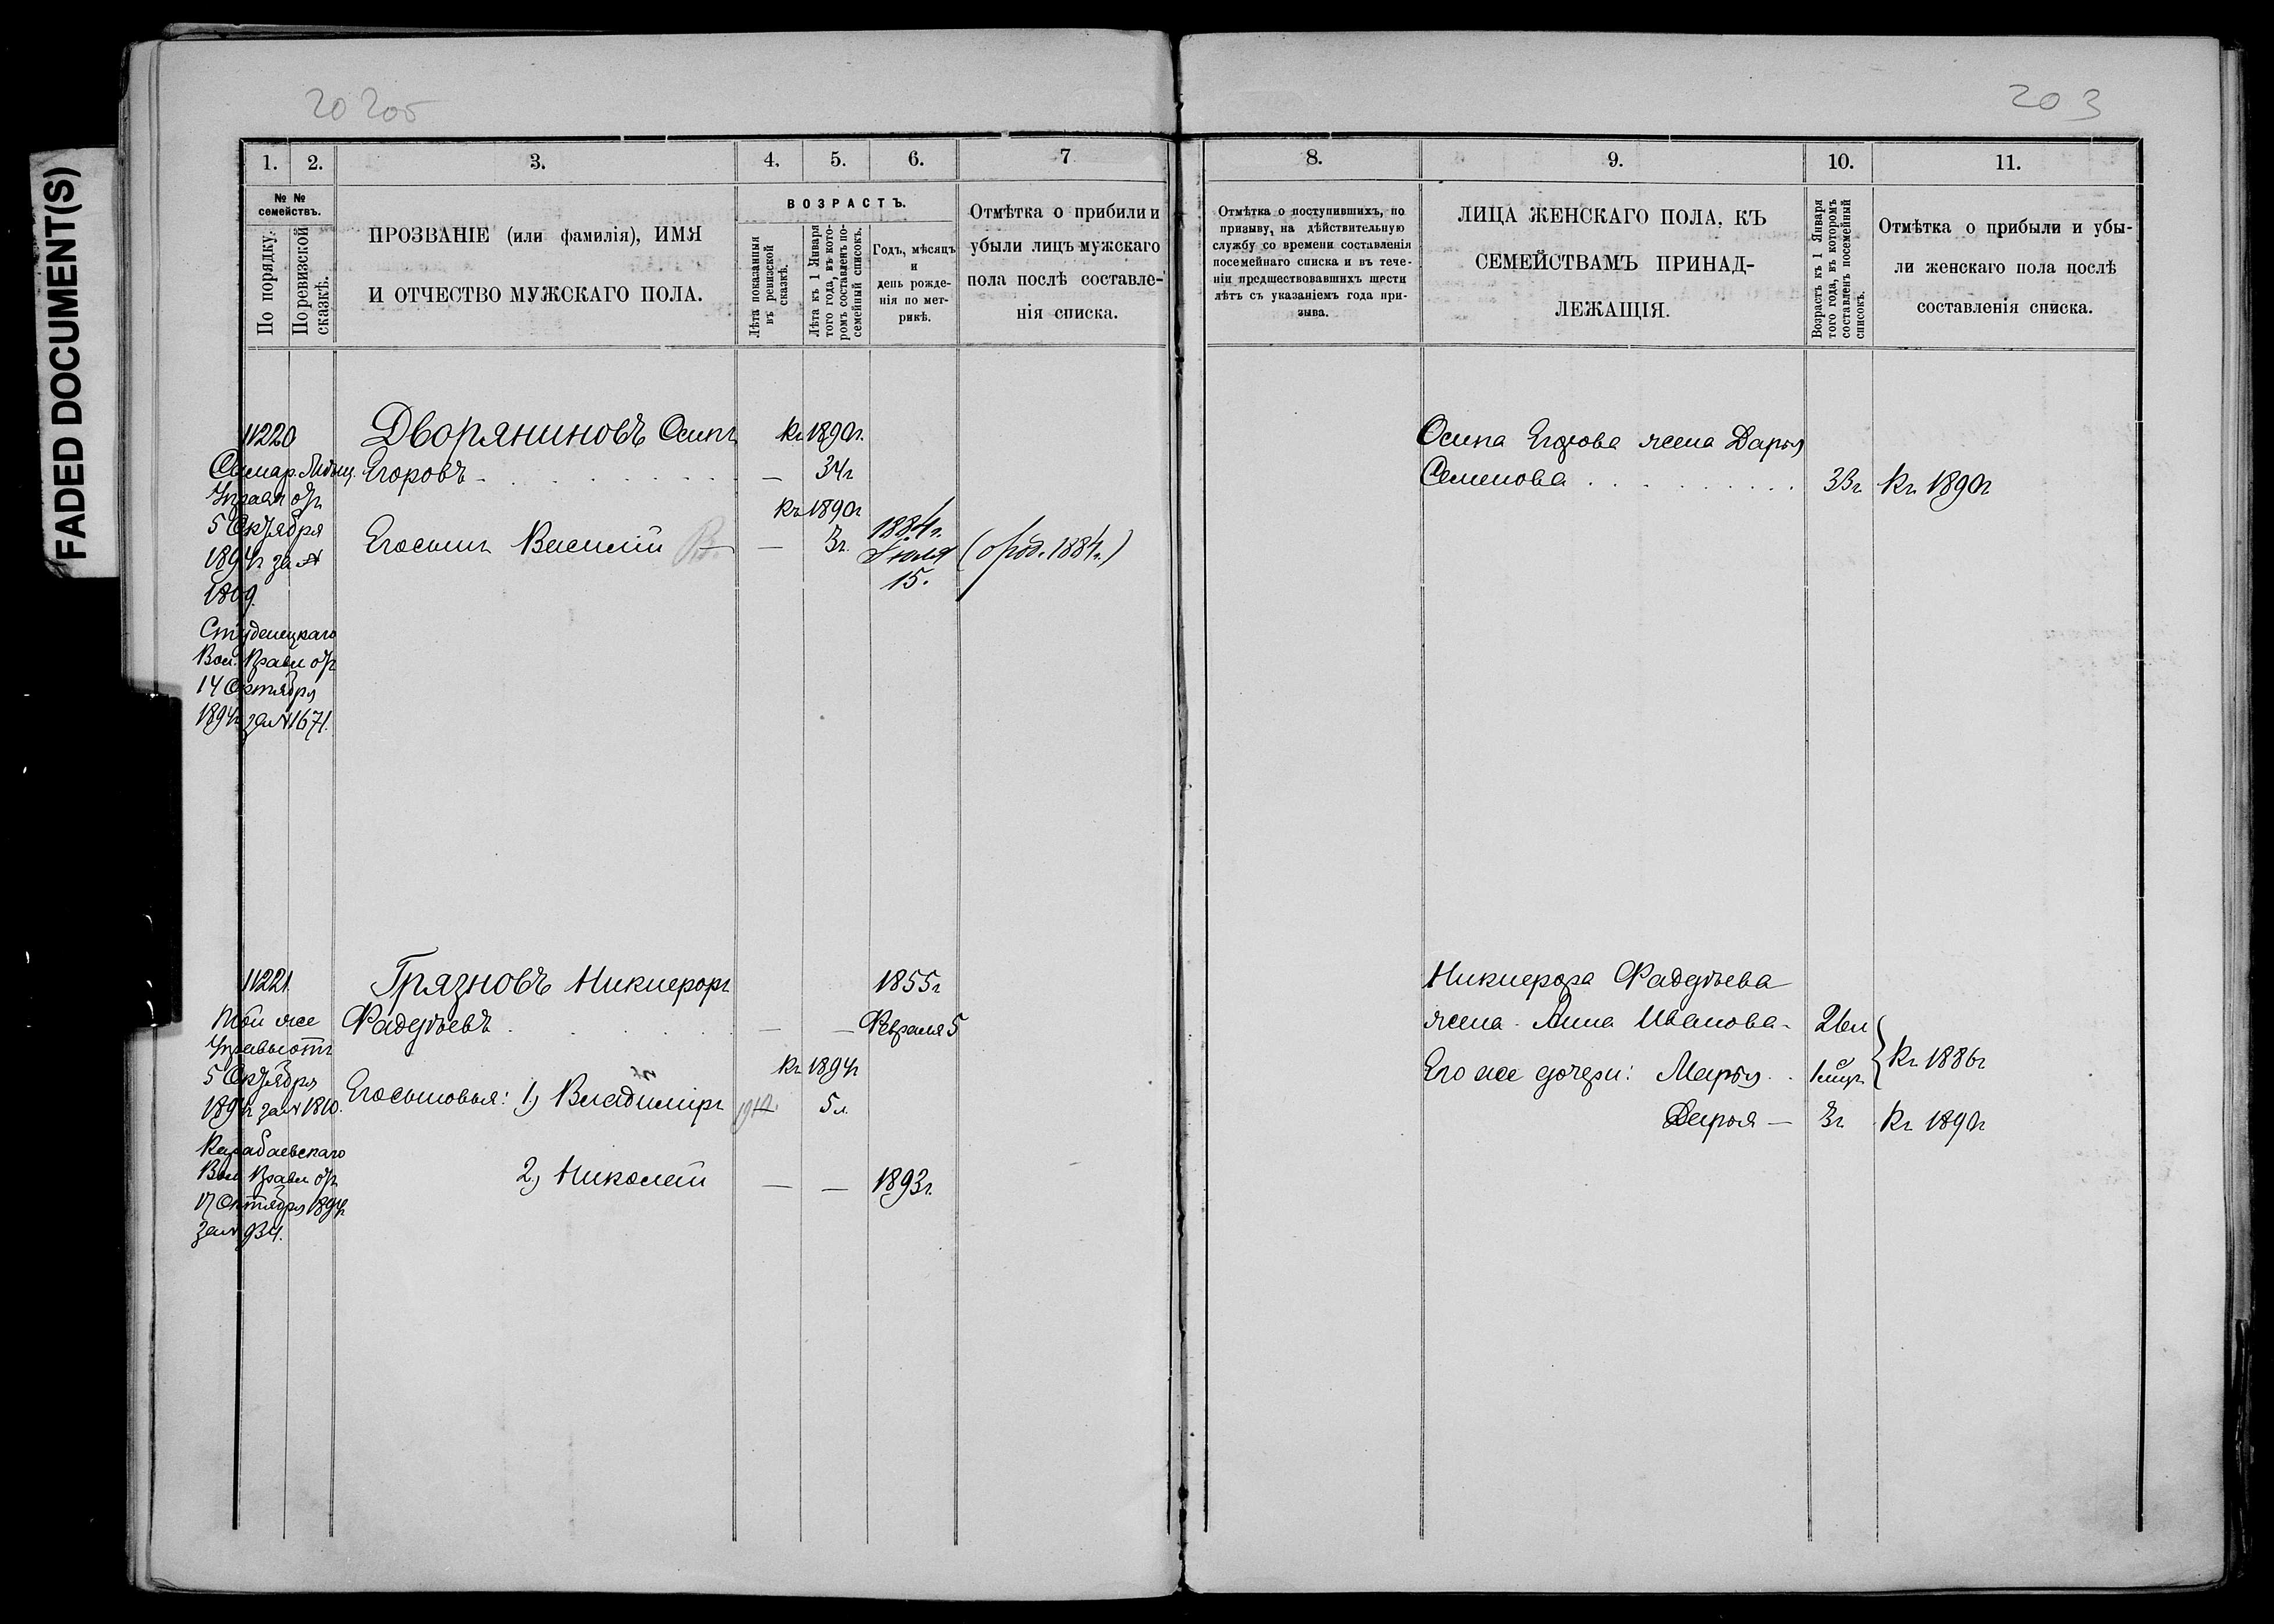 FADED DOCUMENT(S)
20 205
1. 2. 3. 4. 5. 6. 7
№ №
семействъ.
По порядку.
По ревизской
сказкѣ.
ПРОЗВАНІЕ (или фамилія), ИМЯ
И ОТЧЕСТВО МУЖСКАГО ПОЛА.
ВОЗРАСТЪ.
Лѣта показанныя
въ ревизской
сказкѣ.
Лѣта къ 1 Января
того года, въ кото-
ромъ составленъ по-
семейный списокъ.
Годъ, мѣсяцъ
и
день рожде-
нія по мет-
рикѣ.
Отмѣтка о прибыли и
убыли лицъ мужскаго
пола послѣ составле-
нія списка.
11220
Самар. Мѣщ.
Управл. отъ
5 Октября
1894г. за №
1809.
Студенецкаго
Вол. Правл. отъ
14 Октября
1894г. за №1671.
Дворяниновъ Осипъ
Егоровъ
къ 1890г.
34г
Его сынъ Василій
къ 1890г
3г.
1884г.
Іюля
15.
(о род. 1884г.)
11221.
Той же
Управы отъ
5 Октября
1894г за №1810.
Карабаевскаго
Вол. Правл. отъ
17 Октября 1894г
за № 934.
Грязновъ Никифоръ
Фадѣевъ
1855г
Февраля 5
Его сыновья: 1) Владиміръ
1912.
къ 1894г
5л.
2) Николай
1893г.
203
8. 9. 10. 11.
Отмѣтка о поступившихъ, по
призыву, на дѣйствительную
службу со времени составленія
посемейнаго списка и въ тече-
ніи предшествовавшихъ шести
лѣтъ съ указаніемъ года при-
зыва.
ЛИЦА ЖЕНСКАГО ПОЛА, КЪ
СЕМЕЙСТВАМЪ ПРИНАД-
ЛЕЖАЩІЯ.
Возрастъ къ 1 Января
того года, въ которомъ
составленъ посемейный
списокъ.
Отмѣтка о прибыли и убы-
ли женскаго пола послѣ
составленія списка.
Осипа Егорова жена Дарья
Семенова 33г къ 1890г
Никифора Фадѣева
жена Анна Иванова 26л
Его же дочери: Марья 1 мѣс. къ 1886г
Дарья 3г къ 1890г